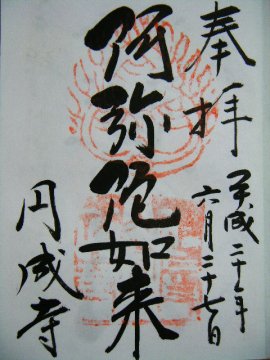 奉拝
平成二十年
六月二十七日
阿弥陀如来
円成寺